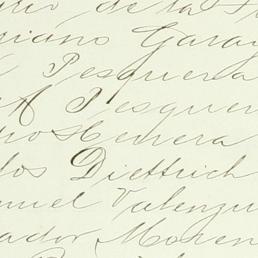 de la
Garay
Pesquera
A Pesquer
Herrera
los Diettrich
nuel Valenzu
ador Moren